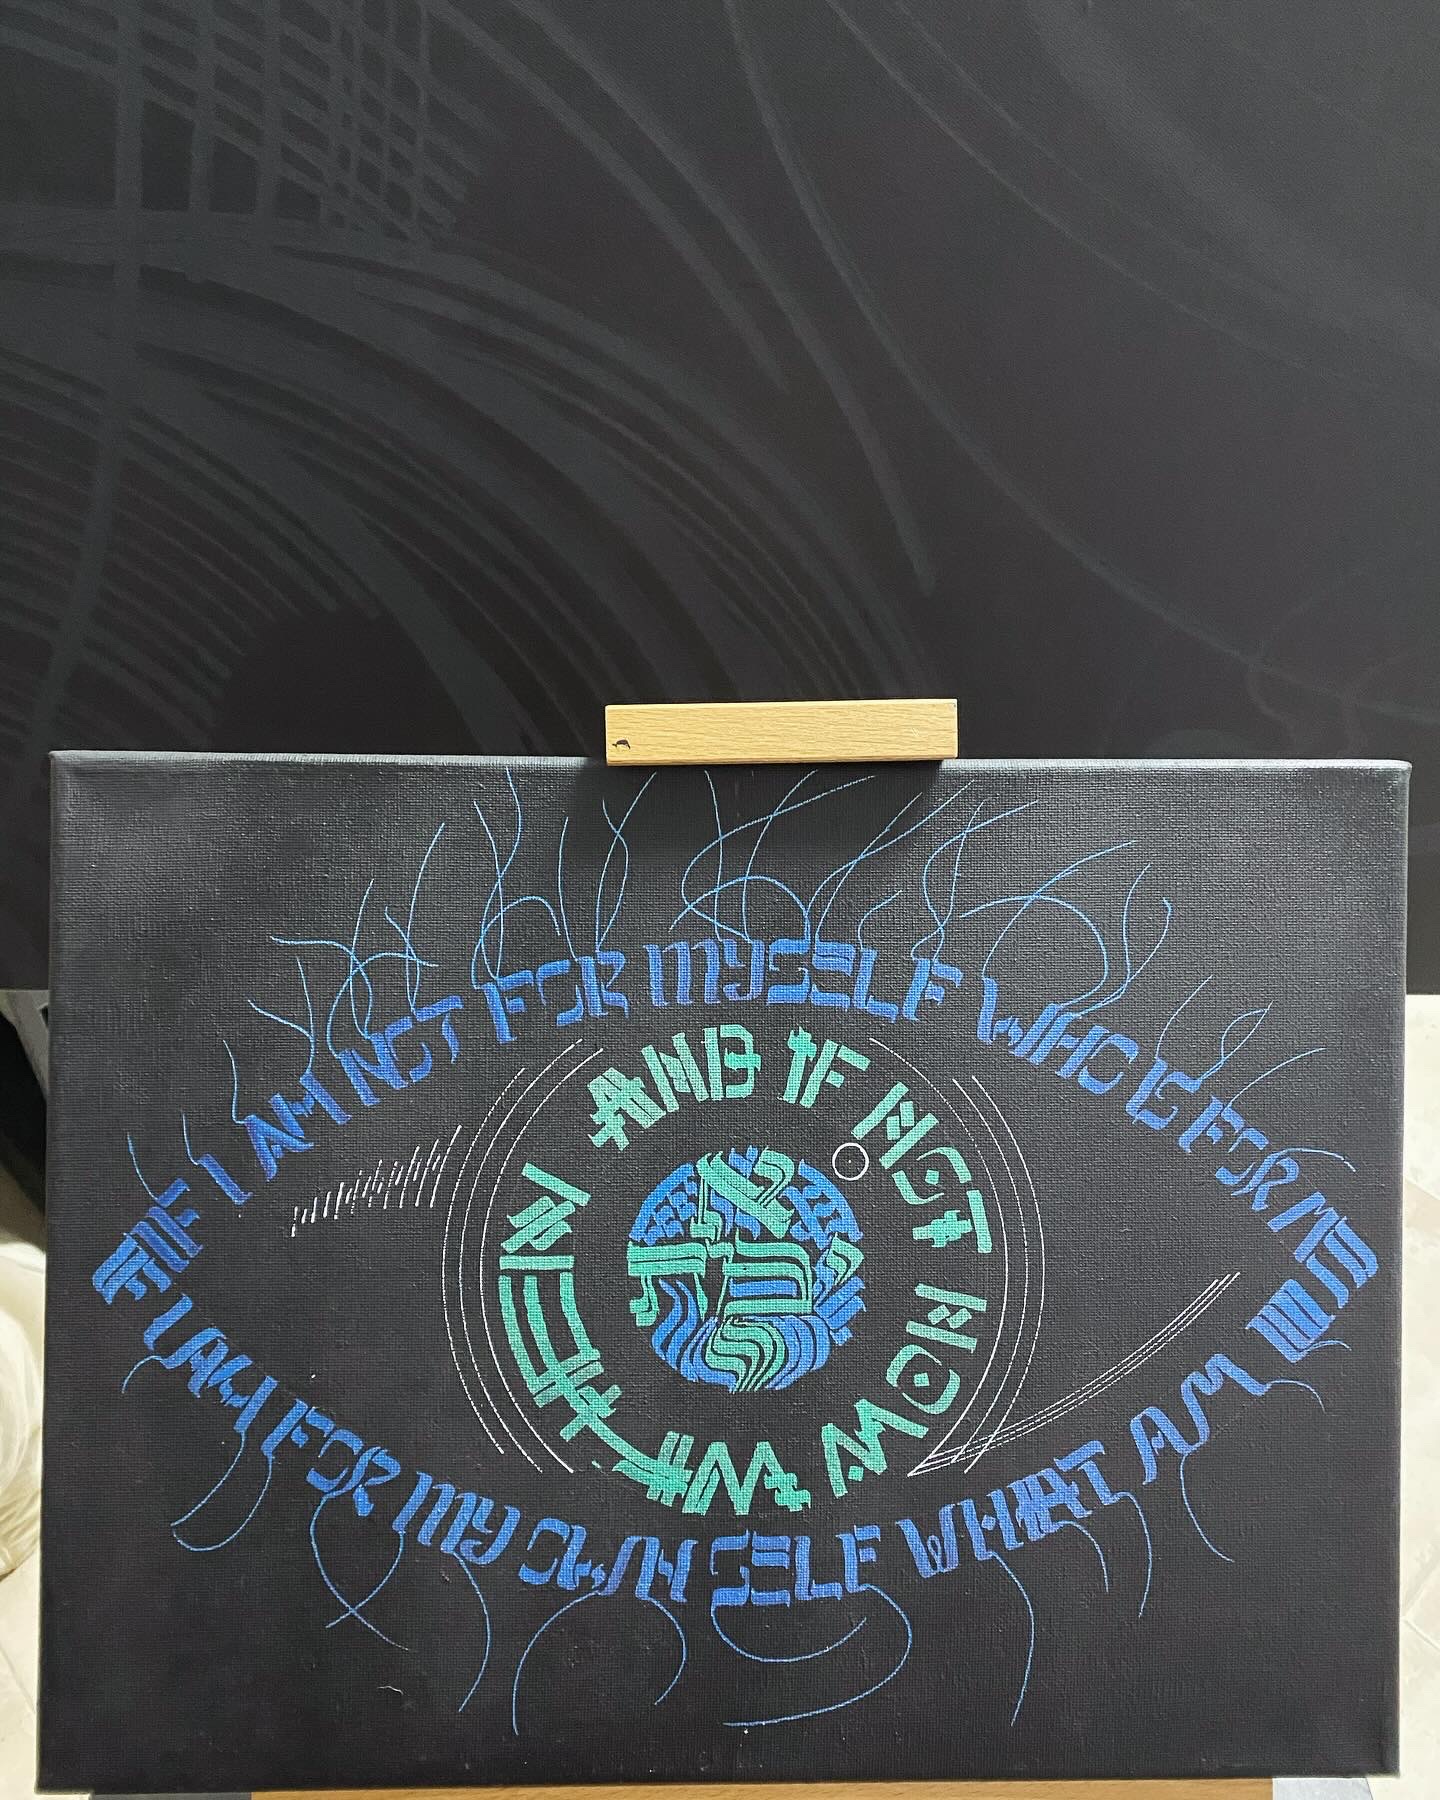 IF I AM NOT FOR MYSELF WHO IS FOR ME
IF I AM FOR MY OWN SELF WHAT AM I
AND IF NOT NOW WHEN